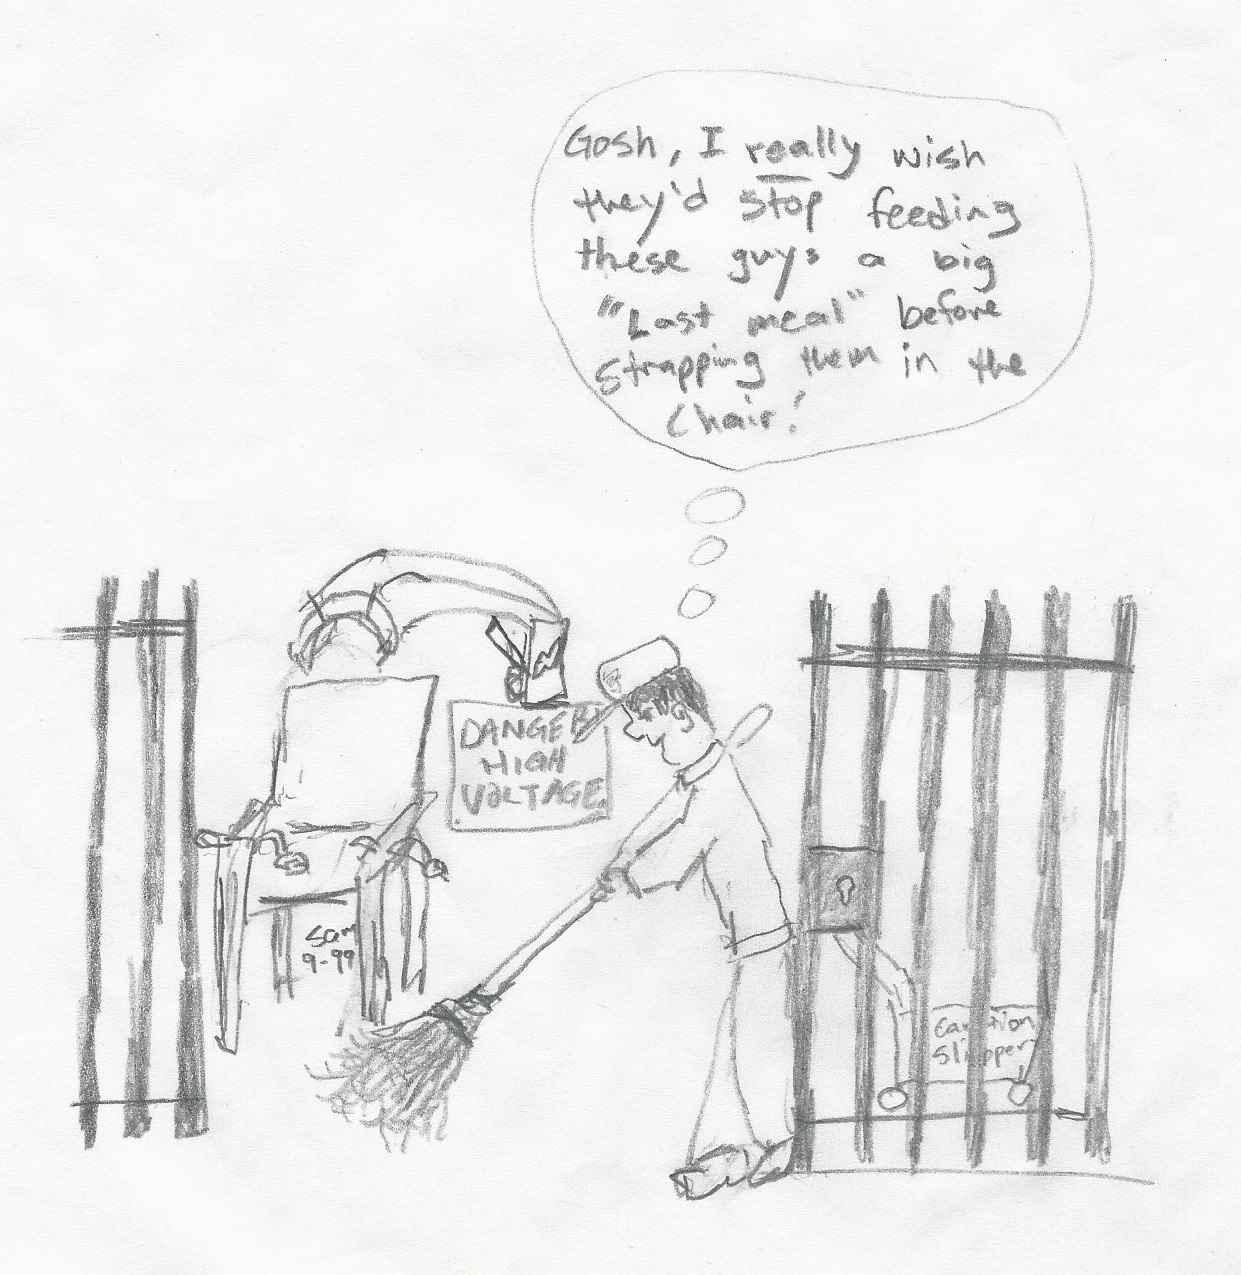 Gosh, I really wish
they'd stop feeding
these guys a big
"Last meal" before
strapping them in the
Chair!
DANGER
HIGH
VOLTAGE
Sam
9-99
Caution
Slippery